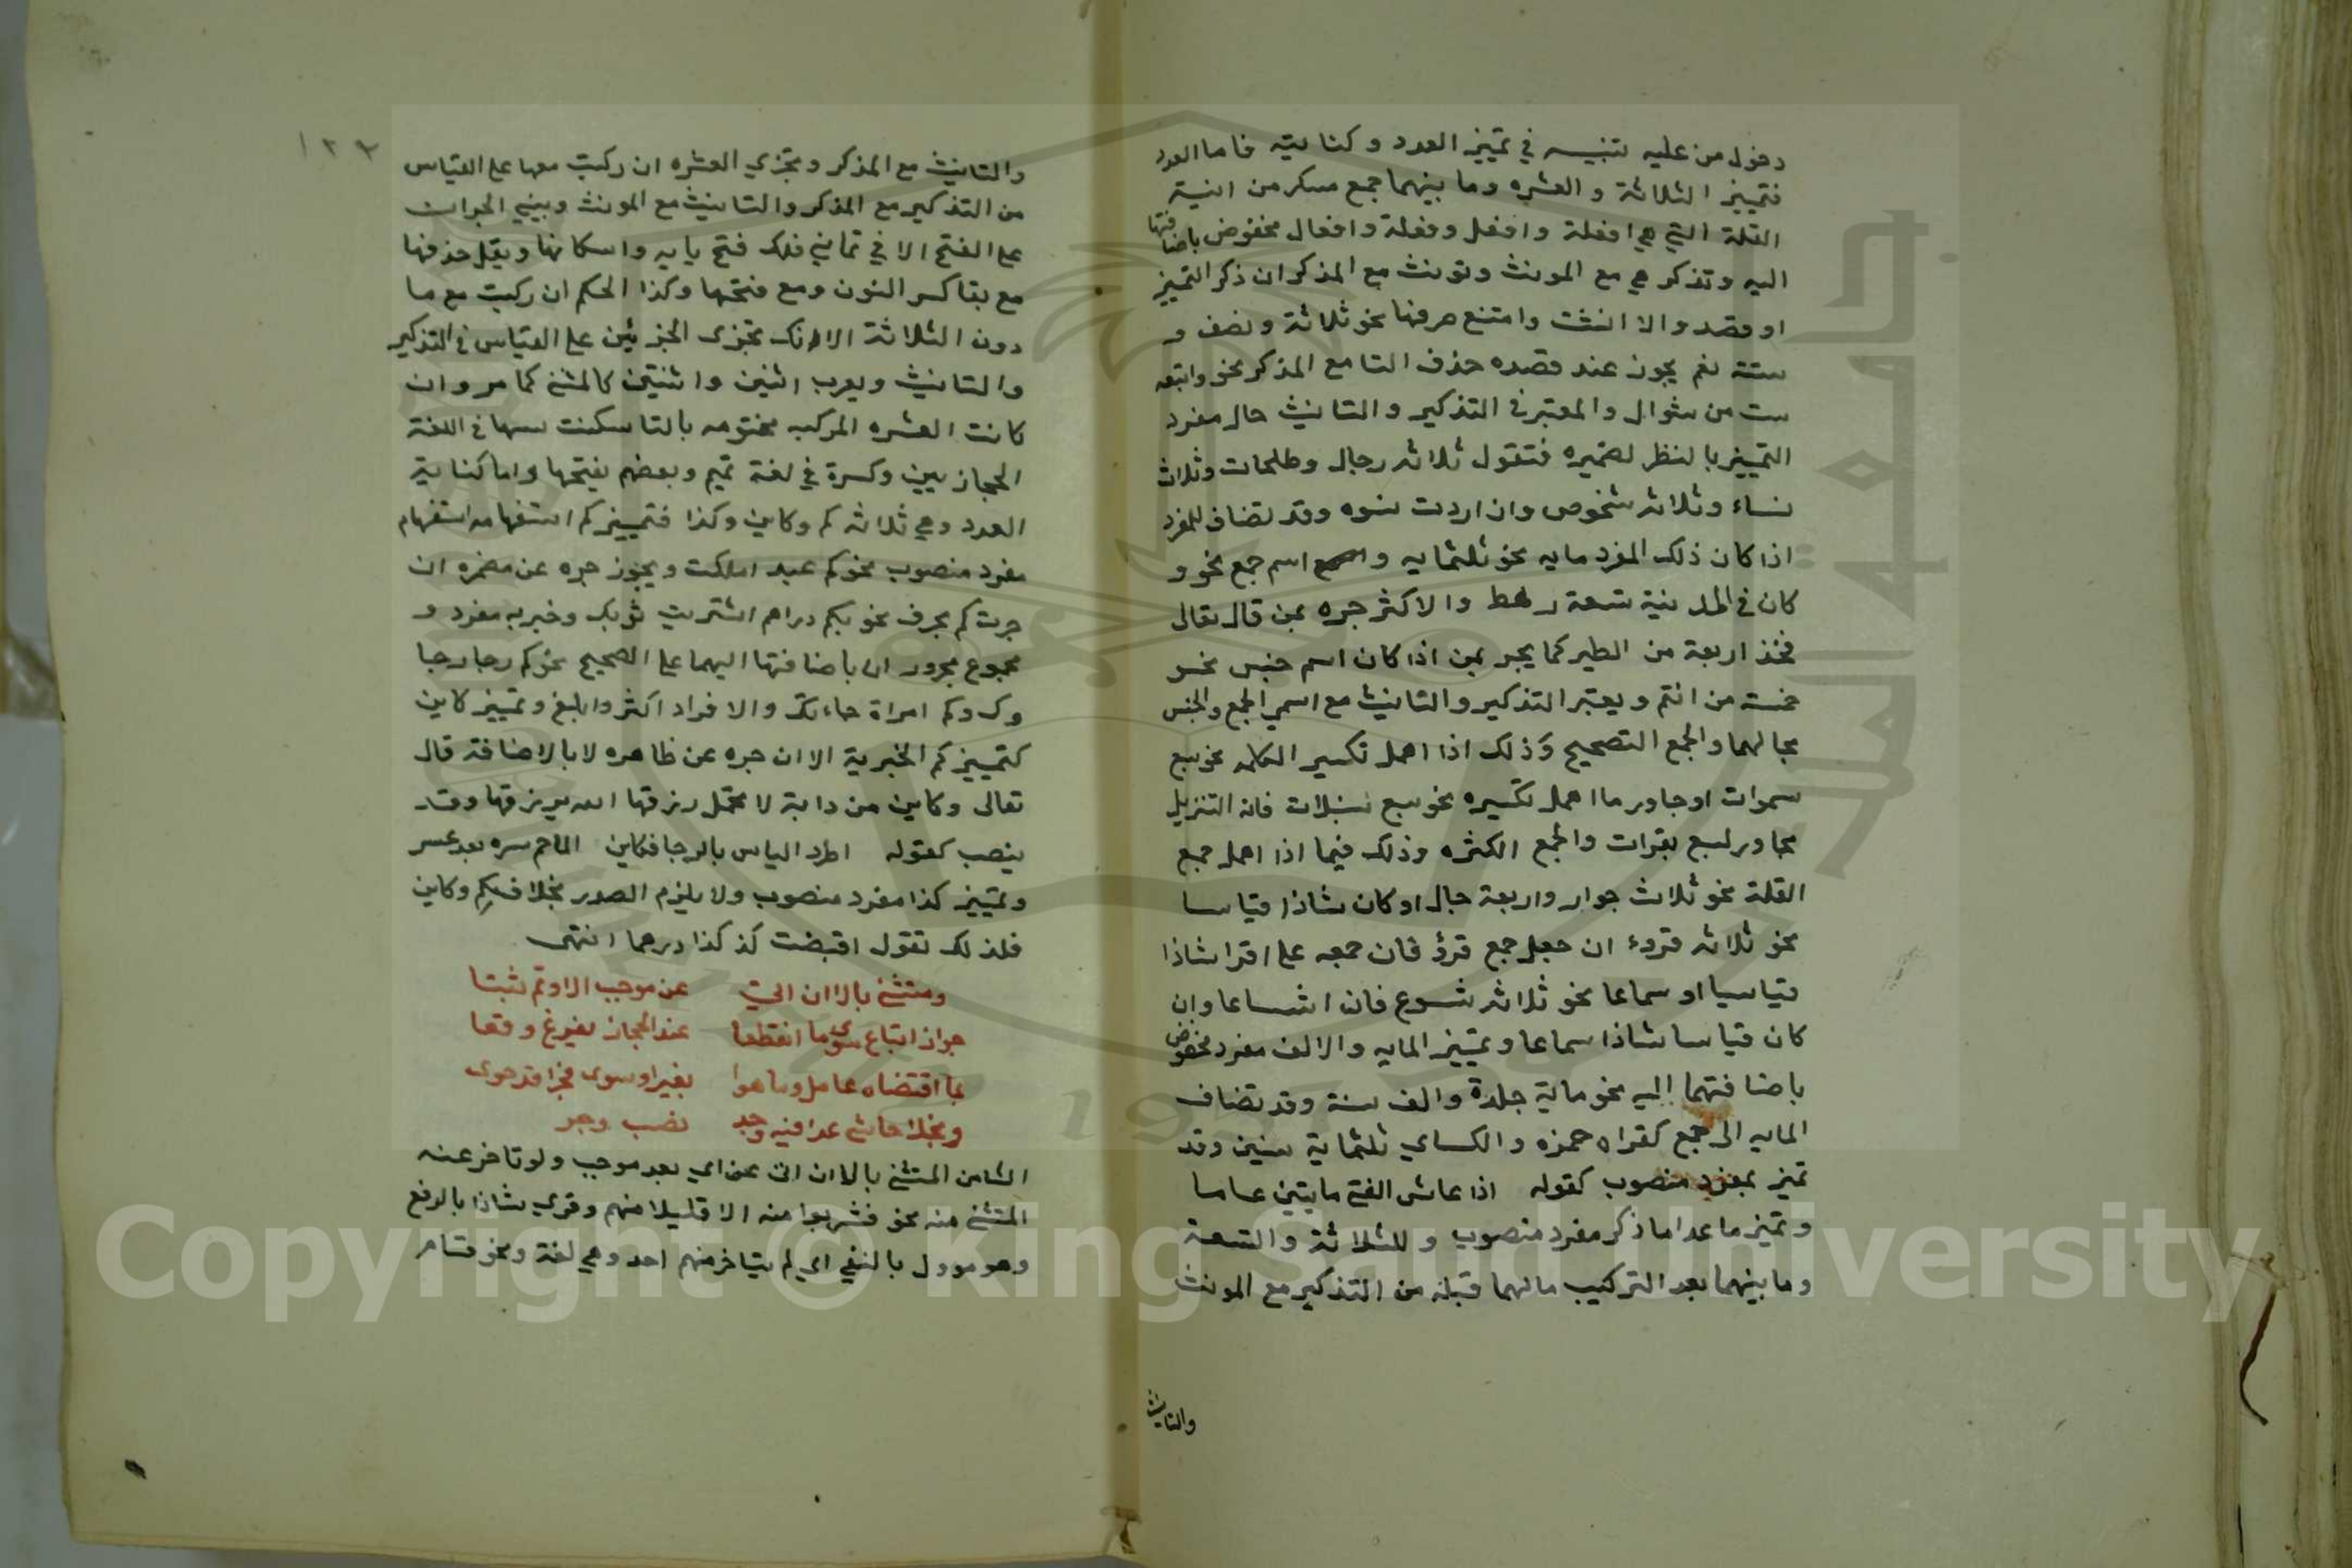 دخول من عليه تنبيه في تمييز العدد وكنايته فاما العدد
فتمييز الثلاثة والعشره وما بينهما جمع مكسر من ابنية
القلة التي هي افعلة وافعل وفعلة وافعال مخفوض باضافتها
اليه وتذكر هي مع المونث وتونث مع المذكر ان ذكر التمييز
او قصد والا انثت وامتنع صرفها نحو ثلاثة ونصف و
ستة نعم يجوز عند قصده حذف التا مع المذكر نحو واتبعه
ست من شوال والمعتبر في التذكير والتانيث حال مفرد
التمييز بالنظر لضميره فتقول ثلاثه رجال وطلحات وثلاث
نساء وثلاثه شخوص وان اردت نسوه وقد تضاف للمفرد
اذا كان ذلك المفرد مايه نحو ثلثمايه و اسم جمع نحو و
كان في المدينة تسعة رهط والاكثر جره بمن قال تعالى
فخذ اربعة من الطير كما يجر بمن اذا كان اسم جنس نحو
خمسة من التم ويعتبر التذكير والتانيث مع اسمي الجمع والجنس
بحالهما والجمع التصحيح وذلك اذا اهمل تكسير الكلمه نحو سبع
سموات او جاور ما اهمل تكسيره نحو سبع سنبلات فانه التنزيل
مجاور لسبع بقرات والجمع الكثره وذلك فيما اذا اهمل جمع
القلة نحو ثلاث جوار واربعة حبال او كان شاذا قياسا
نحو ثلاثه قروء ان جعل جمع قرؤ فان جمعه على اقرا شاذا
قياسيا او سماعا نحو ثلاثه شسوع فان اشساعا وان
كان قياسا شاذا سماعا وتمييز المايه والالف مفرد مخفوض
باضافتهما اليه نحو ماية جلدة والف سنة وقد تضاف
المايه الى جمع كقراه حمزه والكساي ثلثماية سنين وقد
تميز بمفرد منصوب كقوله اذا عاش الفتى مايتين عاما
وتميز ما عدا ما ذكر مفرد منصوب وللثلاثة والتسعة
وما بينهما بعد التركيب ما لهما قبله من التذكير مع المونث
والتانيث
١٢٣
والتانيث مع المذكر وتجزي العشره ان ركبت معها على القياس
من التذكير مع المذكر والتانيث مع المونث وبيني الجوان
على الفتح الا في ثماني فلك فتح يايه واسكانها ويقل حذفها
مع بقا كسر النون ومع فتحها وكذا الحكم ان ركبت مع ما
دون الثلاثة الا انك تجزى الجزئين على القياس في التذكير
والتانيث ويعرب اثنين واثنتين كالمثنى كما مر وان
كانت العشره المركب مختومه بالتا سكنت شينها في اللغة
الحجازيين وكسرة في لغة تميم وبعضهم يفتحها واما كناية
العدد وهي ثلاثه كم وكاين وكذا فتمييز كم استفهاميه استفهام
مفرد منصوب نحو كم عبد املكت ويجوز جره عن مضمره ان
جرت كم بحرف نحو بكم دراهم اشتريت ثوبك وخبريه مفرد و
مجموع مجرور ان باضافتها اليهما على الصحيح نحو كم رجا رجا
وكم امراة جاءتك والافراد اكثر وابلغ وتمييز كاين
كتمييز كم الخبرية الا ان جره عن ظاهره لا بالاضافة قال
تعالى وكاين من دابة لا تحمل رزقها الله يرزقها وقد
ينصب كقوله اطرد الياس بالرجا فكاين الما حم يسره بعد عسر
وتمييز كذا مفرد منصوب ولا يلزم الصدر بخلاف كم وكاين
فلذلك تقول اقبضت كذ كذا درهما انتهى
ومستثنى بالا ان اتى عن موجب الا وتم ثبتا
جواز اتباع سوى ما انقطعا عند الحجاز تفريغ وقعا
بما اقتضاه عامل وما هوا بغير او سوى فجرا قد حوى
وبخلا حاشى عدا فيه وجد نصب وجر
الثامن المستثنى بالا ان اتى عن اي بعد موجب ولو تاخر عنه
المستثنى منه نحو فشربوا منه الا قليلا منهم وقري شاذا بالرفع
وهو موول بالنفي اي لم يتاخر منهم احد وهي لغة ونحو قام
Copyright © King Saud University
1957